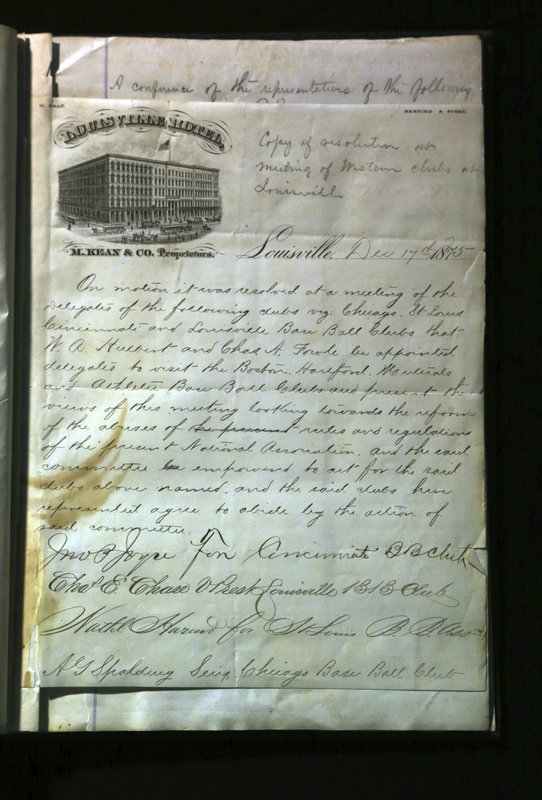 A conference of the representatives of the following
LOUISVILLE HOTEL.
M. KEAN & CO. Proprietors.
Copy of resolution at
meeting of Western clubs at
Louisville
Louisville, Dec 17th 1875
On motion it was resolved at a meeting of the
delegates of the following clubs viz; Chicago, St Louis
Cincinnati and Louisville Base Ball Clubs that
W. A. Hulbert and Chas A. Fowle be appointed
delegates to visit the Boston, Hartford, Mutuals
and Athletics Base Ball Clubs and present the
views of this meeting looking towards the reform
of the abuses of the present rules and regulations
of the present National Association, and the said
committee be empowered to act for the said
clubs above named, and the said clubs here
represented agree to abide by the action of
said committee.
Jno P Joyce For Cincinnati B B Club
Chas E. Chase V Prest Louisville B B Club
Nathl Hazard for St Louis B. B. Assn
A G Spalding Secy, Chicago Base Ball Club